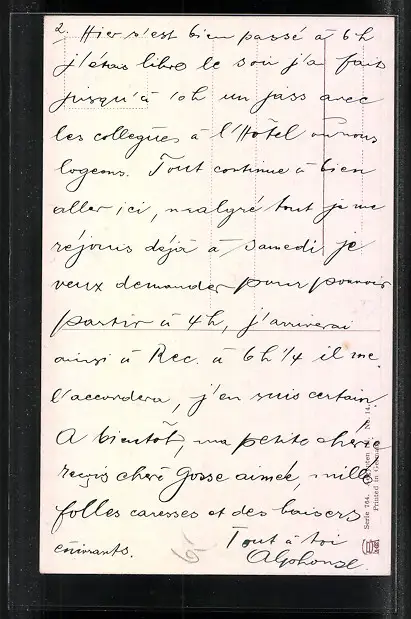 2. Hier s'est bien passé à 6h
j'étais libre le soir j'ai fait
jusqu'à 10h un jass avec
les collegues à l'Hôtel où nous
logeons. Tout continue à bien
aller ici, malgré tout je me
réjouis déjà à samedi je
veux demander pour pouvoir
partir à 4h, j'arriverai
ainsi à Rec. à 6h 1/4 il me
l'accordera, j'en suis certain
A bientôt, ma petite chérie
reçois chère Gosse aimée, mille
folles caresses et des baisers
enivrants.
Tout à toi
Alphonse.
Serie 764. No. 14.
Printed in